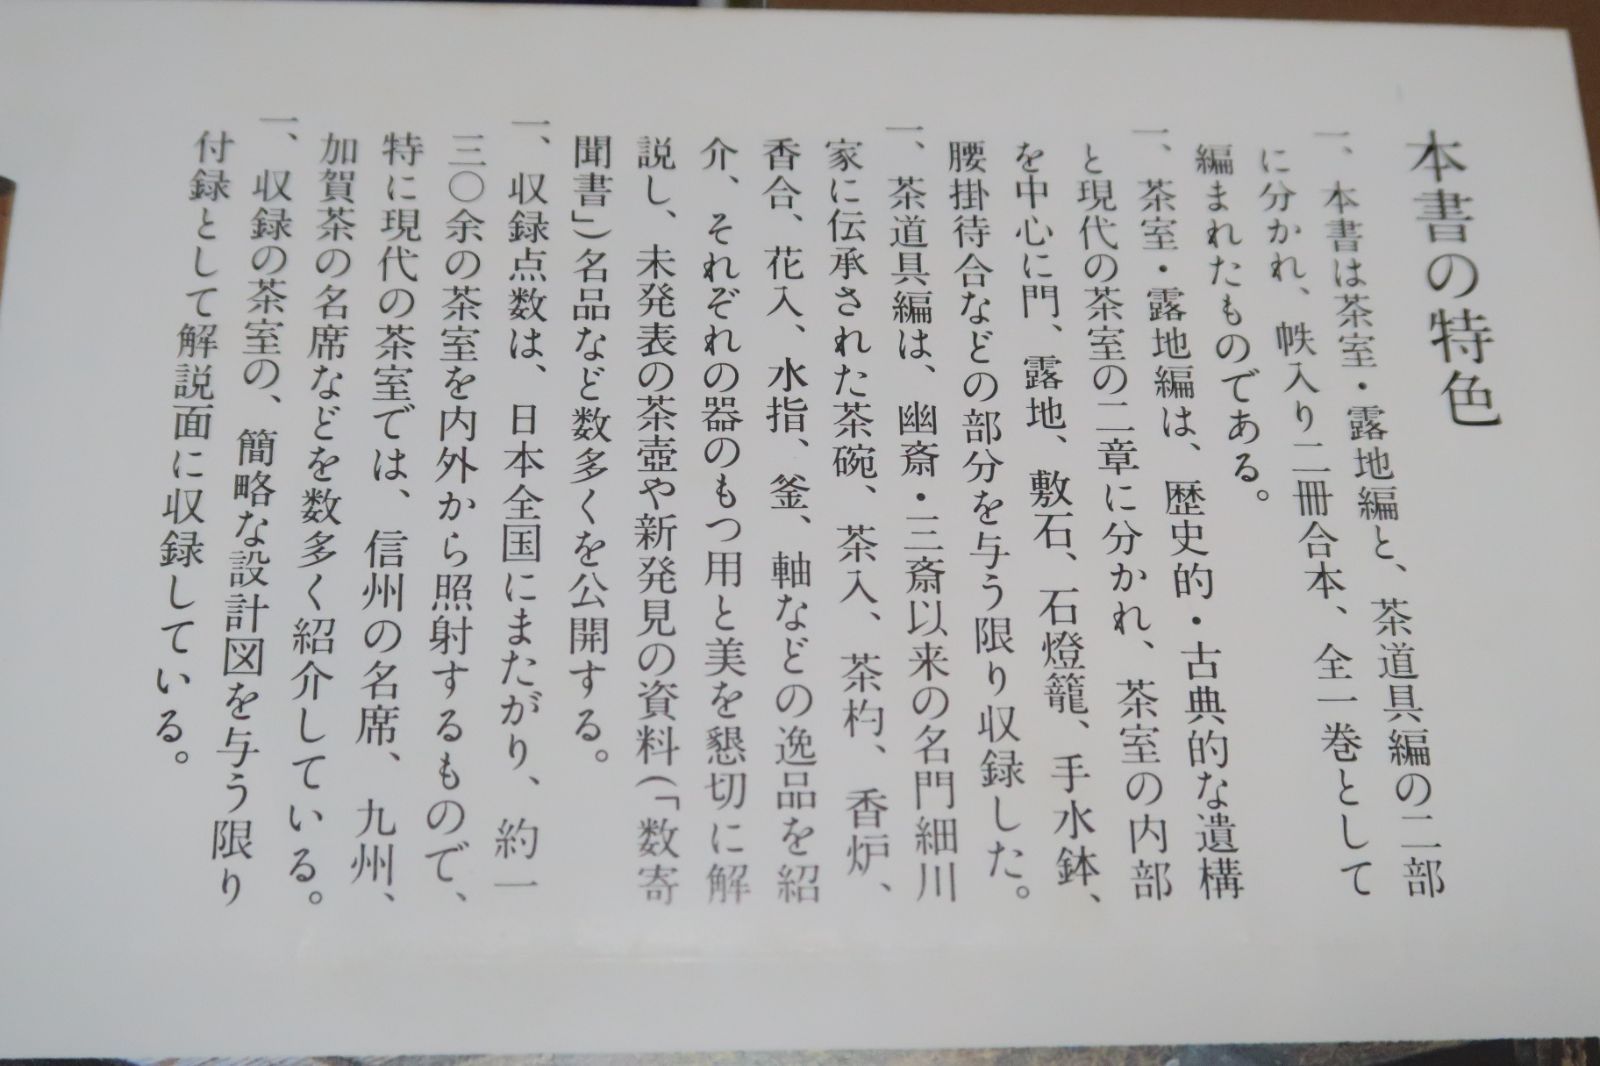 本書の特色
一、本書は茶室・露地編と、茶道具編の二部
に分かれ、帙入り二冊合本、全一巻として
編まれたものである。
一、茶室・露地編は、歴史的・古典的な遺構
と現代の茶室の二章に分かれ、茶室の内部
を中心に門、露地、敷石、石燈籠、手水鉢、
腰掛待合などの部分を与う限り収録した。
一、茶道具編は、幽斎・三斎以来の名門細川
家に伝承された茶碗、茶入、茶杓、香炉、
香合、花入、水指、釜、軸などの逸品を紹
介、それぞれの器のもつ用と美を懇切に解
説し、未発表の茶壺や新発見の資料(「数寄
聞書」)名品など数多くを公開する。
一、収録点数は、日本全国にまたがり、約一
三〇余の茶室を内外から照射するもので、
特に現代の茶室では、信州の名席、九州、
加賀茶の名席などを数多く紹介している。
一、収録の茶室の、簡略な設計図を与う限り
付録として解説面に収録している。